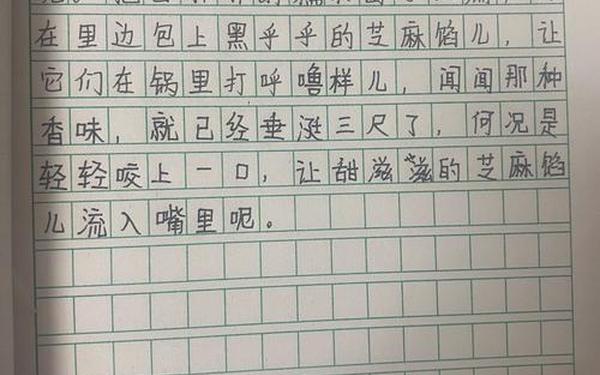 在里边包上黑乎乎的芝麻馅儿，让
它们在锅里打呼噜样儿，闻闻那种
香味，就已经垂涎三尺了，何况是
轻轻咬上一口，让甜滋滋的芝麻馅
儿流入嘴里呢。